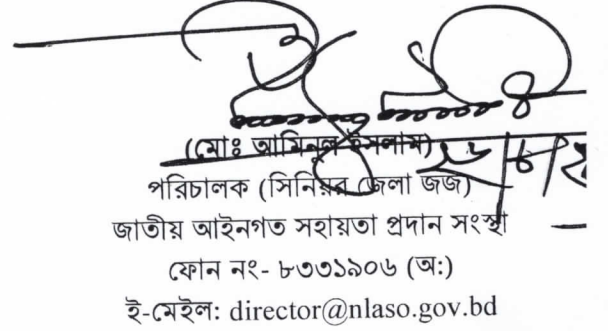 (মোঃ আমিনুল ইসলাম)
পরিচালক (সিনিয়র জেলা জজ)
জাতীয় আইনগত সহায়তা প্রদান সংস্থা
ফোন নং- ৮৩৩১৯০৬ (অ:)
ই-মেইল: director@nlaso.gov.bd